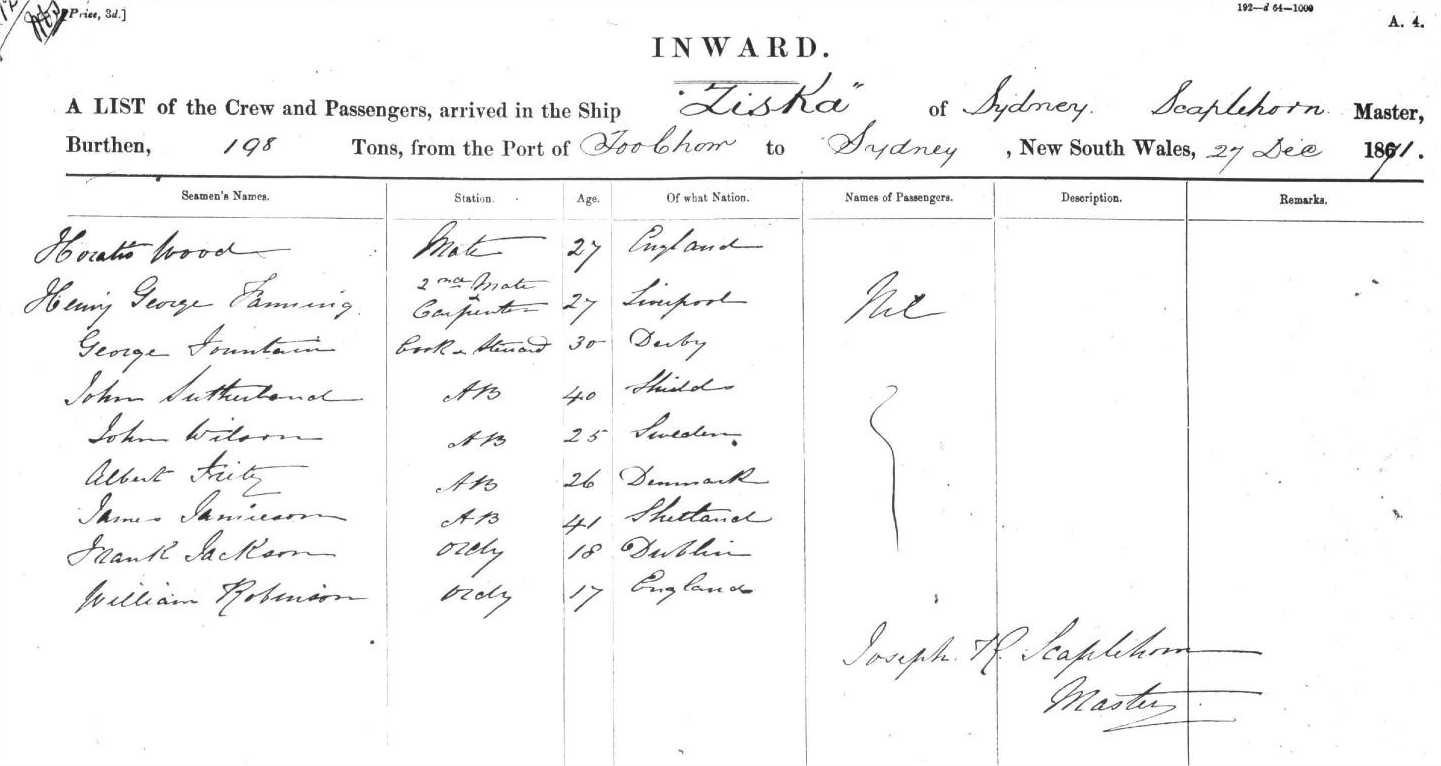 [Price, 3d.]
192—d 64—1000
A. 4.
INWARD.
A LIST of the Crew and Passengers, arrived in the Ship "Ziska" of Sydney. Scaplehorn Master,
Burthen, 198 Tons, from the Port of Foo Chow to Sydney, New South Wales, 27 Dec 1871.
Seamen's Names. Station. Age. Of what Nation. Names of Passengers. Description. Remarks.
Horatio Wood Mate 27 England
Henry George Fanning 2nd Mate & Carpenter 27 Liverpool Nil
George Fountain Cook & Steward 30 Derby
John Sutherland AB 40 Shields
John Wilson AB 25 Sweden.
Albert Fritz AB 26 Denmark
James Jamieson AB 41 Shetland
Frank Jackson Ordy 18 Dublin
William Robinson Ordy 17 England
Joseph. R. Scaplehorn
Master